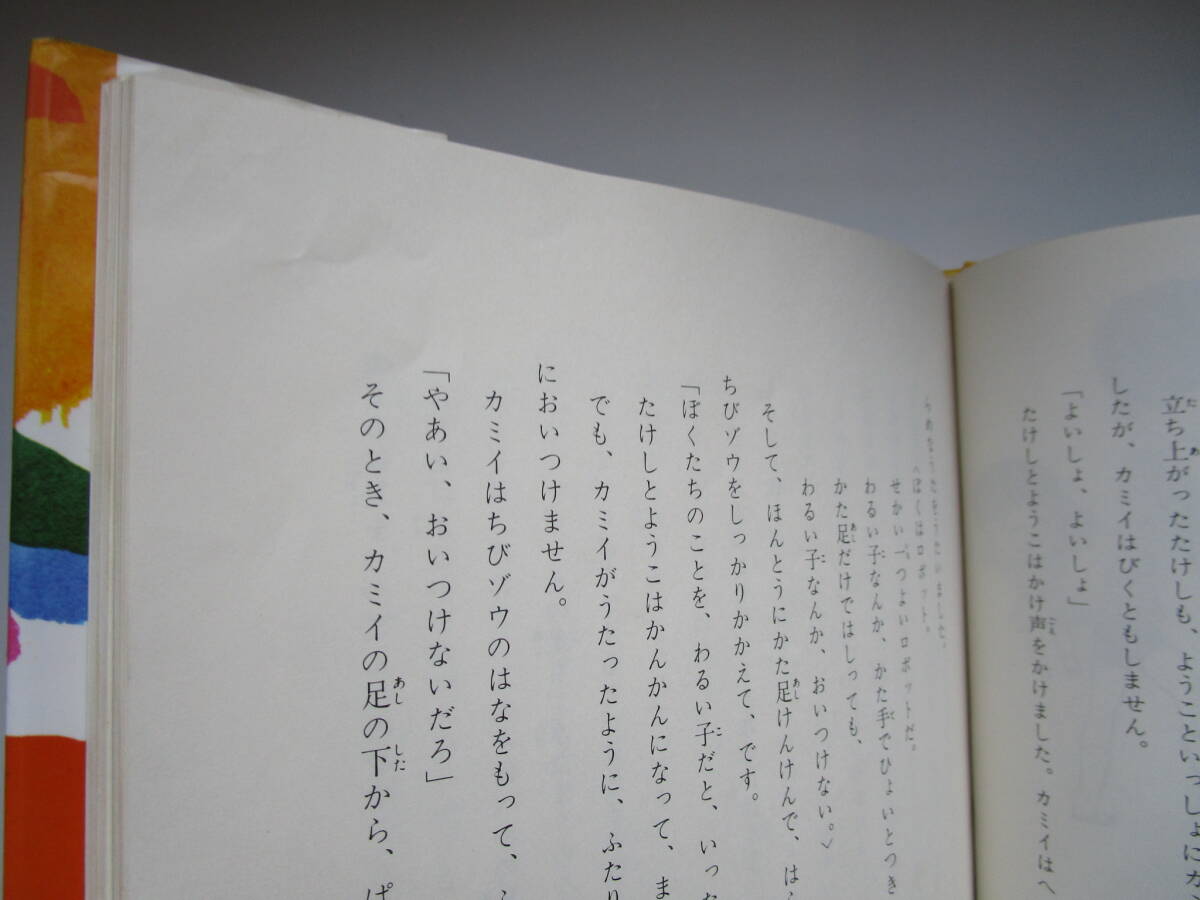 立ち上がったたけしも、ようこといっしょにな
したが、カミイはびくともしません。
「よいしょ、よいしょ」
たけしとようこはかけ声をかけました。カミイはへ
うたをうたいました。
〈ぼくはロボット。
せかい一つよいロボットだ。
わるい子なんか、かた手でひょいとつき
かた足だけではしっても、
わるい子なんか、おいつけない。〉
そして、ほんとうにかた足けんけんで、は
ちびゾウをしっかりかかえて、です。
「ぼくたちのことを、わるい子だと、いった
たけしとようこはかんかんになって、ま
でも、カミイがうたったように、ふたり
においつけません。
カミイはちびゾウのはなをもって、
「やあい、おいつけないだろ」
そのとき、カミイの足の下から、ぱ